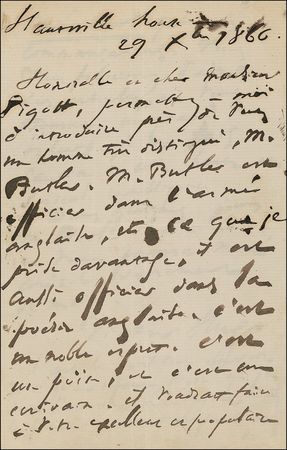 Hauteville house
29 Xbre 1866.
Honorable et cher Monsieur
Pigott, permettez-moi
d'introduire près de vous
un homme très distingué, M.
Butler. M. Butler est
officier dans l'armée
anglaise, et, ce que je
prise davantage, il est
aussi officier dans la
poésie anglaise. C'est
un noble esprit. C'est
un poëte, et c'est un
écrivain. Il voudrait faire
à votre excellent et populaire